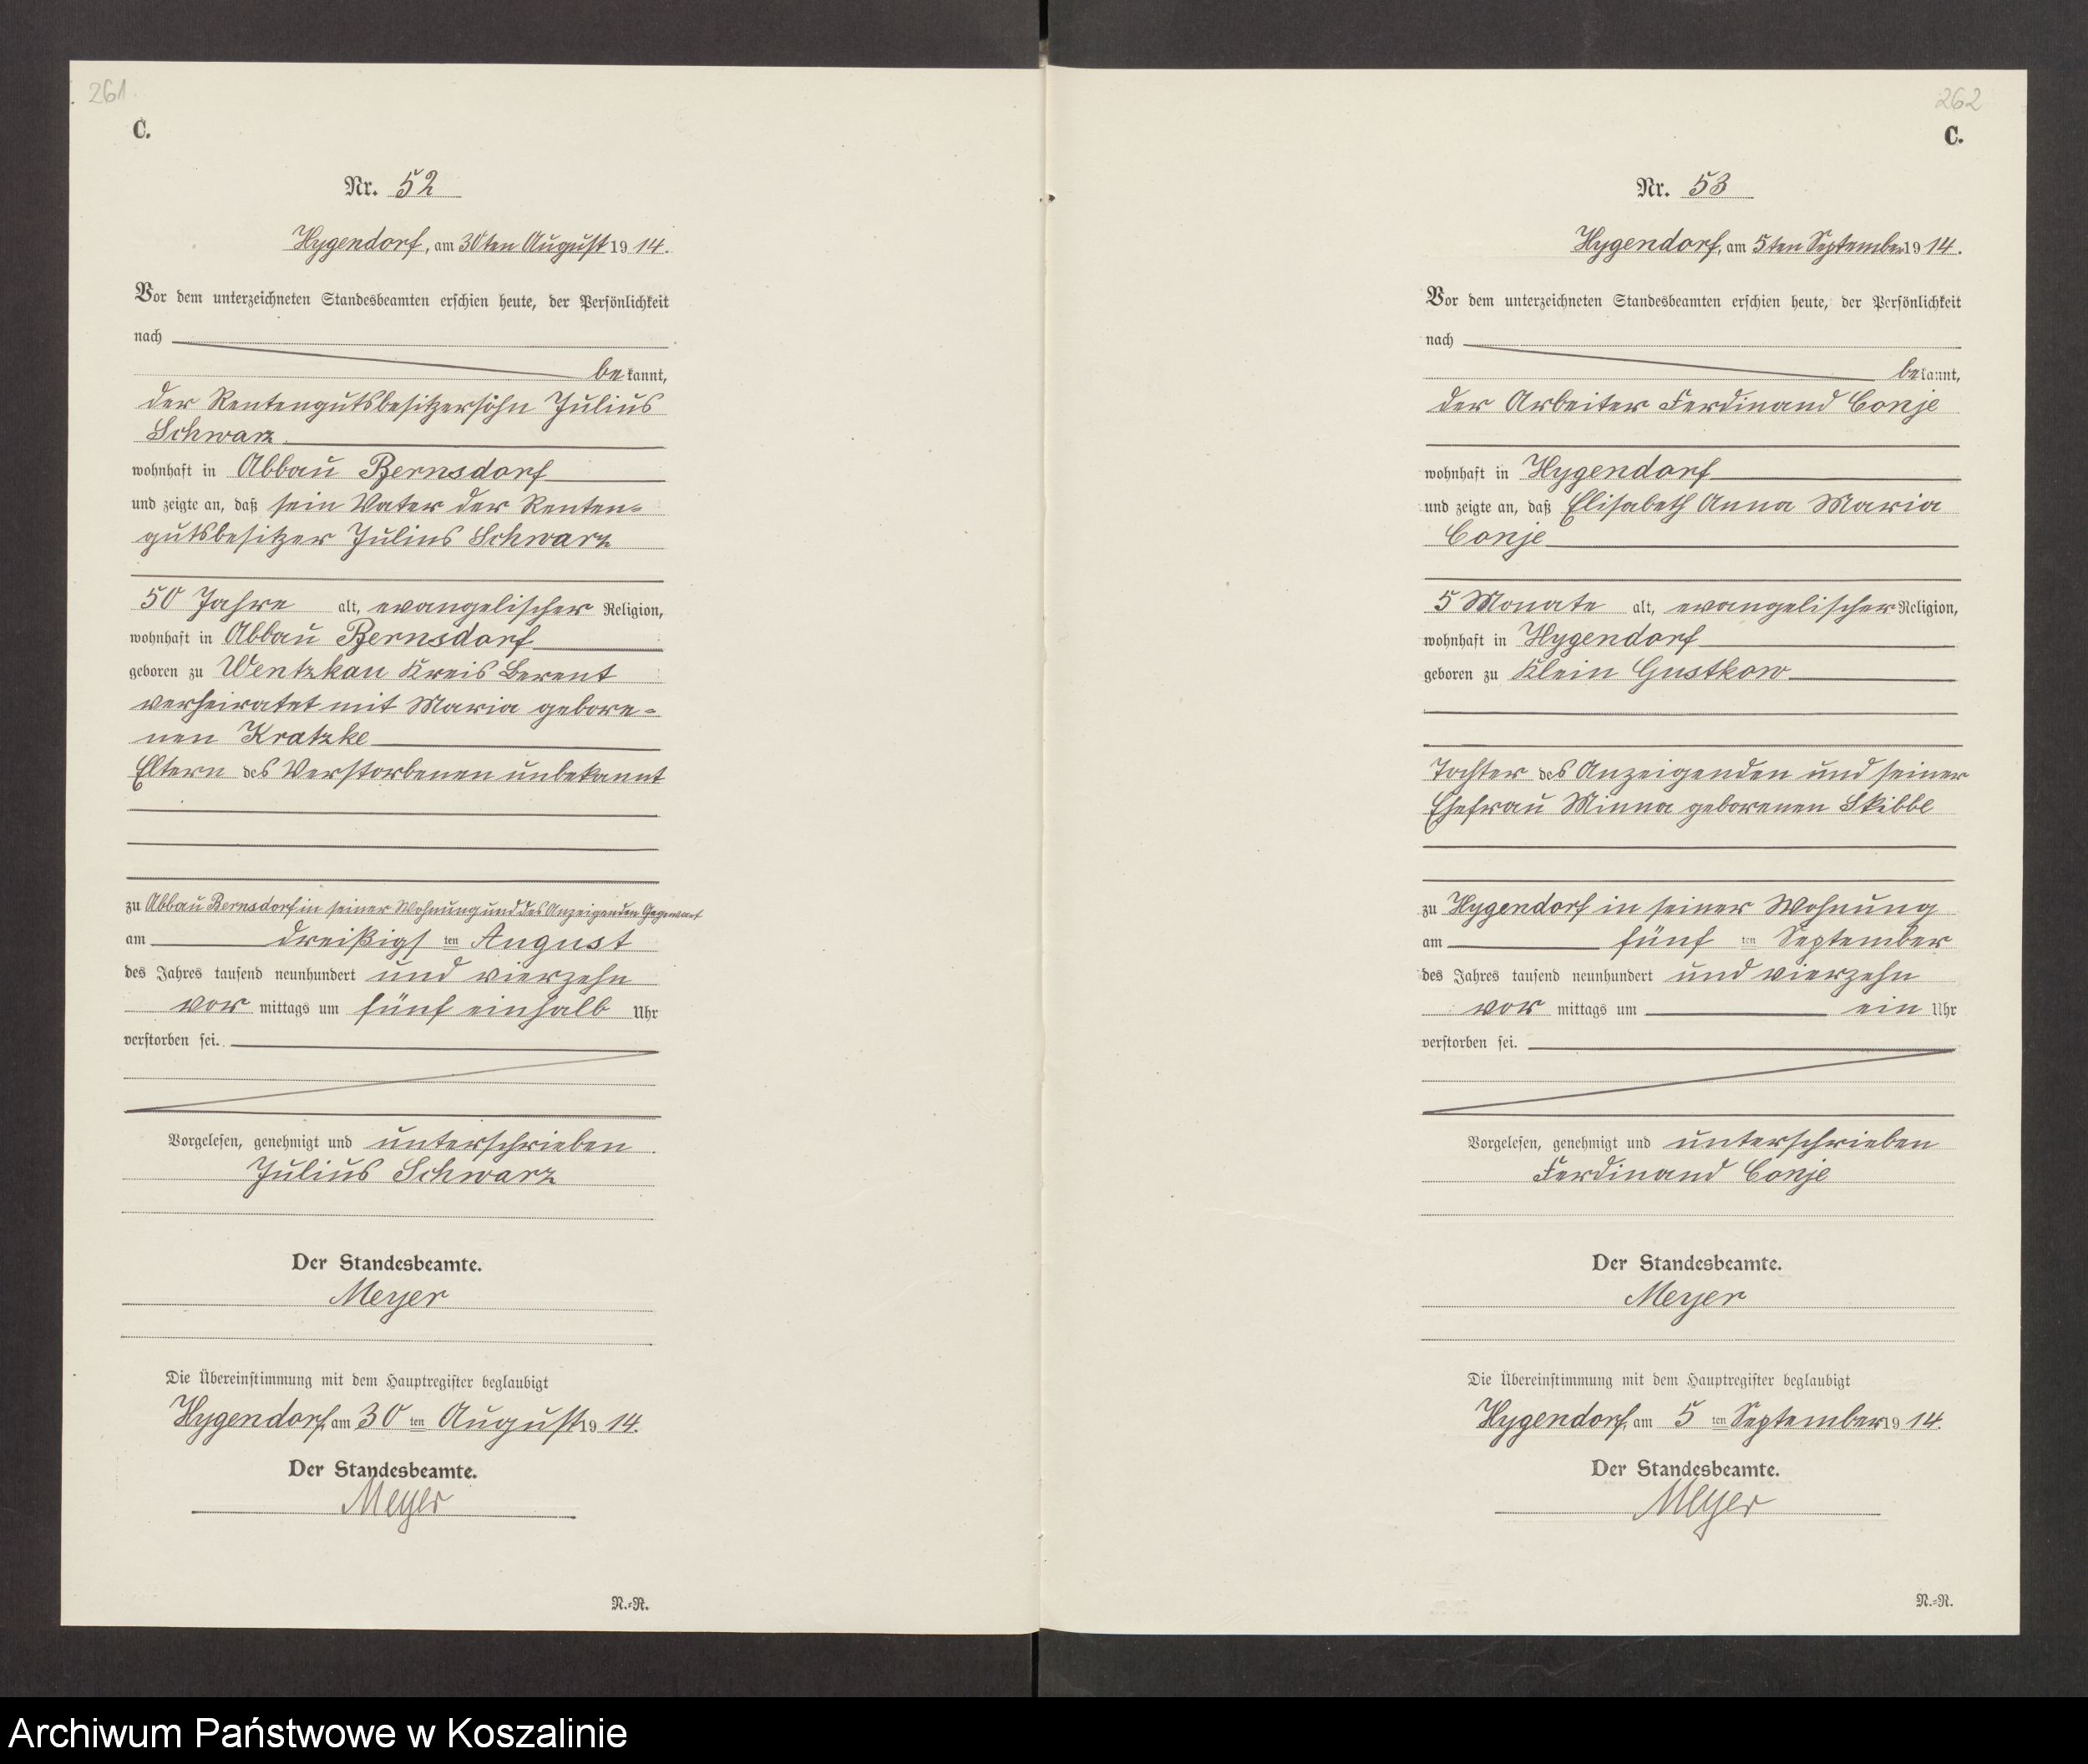 261.
C.
Nr. 52
Hygendorf, am 30ten August 1914.
Vor dem unterzeichneten Standesbeamten erschien heute, der Persönlichkeit
nach
bekannt,
der Rentengutsbesitzersohn Julius
Schwarz
wohnhaft in Abbau Bernsdorf
und zeigte an, daß sein Vater der Renten-
gutsbesitzer Julius Schwarz
50 Jahre alt, evangelischer Religion,
wohnhaft in Abbau Bernsdorf
geboren zu Wentzkau Kreis Berent
verheiratet mit Maria gebore-
nen Kratzke
Eltern des Verstorbenen unbekannt
zu Abbau Bernsdorf in seiner Wohnung und des Anzeigenden Gegenwart
am dreißigsten August
des Jahres tausend neunhundert und vierzehn
vor mittags um fünf einhalb Uhr
verstorben sei.
Vorgelesen, genehmigt und unterschrieben
Julius Schwarz
Der Standesbeamte.
Meyer
Die Übereinstimmung mit dem Hauptregister beglaubigt
Hygendorf, am 30 ten August 1914.
Der Standesbeamte.
Meyer
N.=R.
262
C.
Nr. 53
Hygendorf, am 5ten September 1914.
Vor dem unterzeichneten Standesbeamten erschien heute, der Persönlichkeit
nach
bekannt,
der Arbeiter Ferdinand Conje
wohnhaft in Hygendorf
und zeigte an, daß Elisabeth Anna Maria
Conje
5 Monate alt, evangelischer Religion,
wohnhaft in Hygendorf
geboren zu Klein Gustkow
Tochter des Anzeigenden und seiner
Ehefrau Minna geborenen Skibbe
zu Hygendorf in seiner Wohnung
am fünf ten September
des Jahres tausend neunhundert und vierzehn
vor mittags um ein Uhr
verstorben sei.
Vorgelesen, genehmigt und unterschrieben
Ferdinand Conje
Der Standesbeamte.
Meyer
Die Übereinstimmung mit dem Hauptregister beglaubigt
Hygendorf, am 5 ten September 1914.
Der Standesbeamte.
Meyer
N.=R.
Archiwum Państwowe w Koszalinie